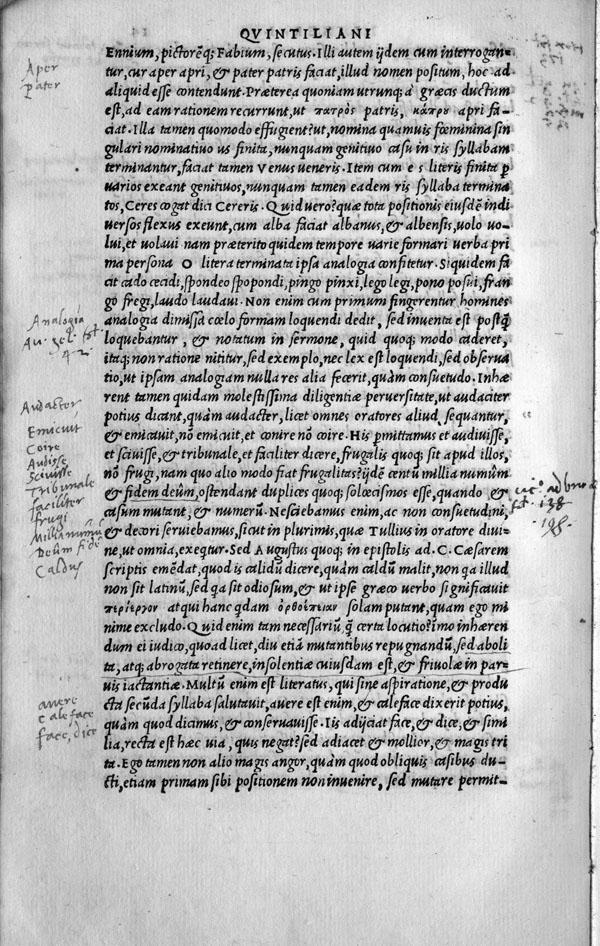 QVINTILIANI
Ennium, pictorēq; Fabium, secutus. Illi autem ijdem cum interrogan-
tur, cur aper apri, & pater patris faciat, illud nomen positum, hoc ad
aliquid esse contendunt. Præterea quoniam utrunq; a græcis ductum
est, ad eam rationem recurrunt, ut πατρὸς patris, κάπρου apri fa-
ciat. Illa tamen quomodo effugient? ut, nomina quamuis fœminina sin
gulari nominatiuo us finita, nunquam genitiuo casu in ris syllabam
terminantur, faciat tamen Venus ueneris. Item cum e s literis finita p
uarios exeant genitiuos, nunquam tamen eadem ris syllaba termina
tos, Ceres cogat dici Cereris. Quid uero? quæ tota positionis eiusdē indi
uersos flexus exeunt, cum alba faciat albanus, & albensis, uolo uo-
lui, et uolaui nam præterito quidem tempore uarie formari uerba pri
ma persona O litera terminata ipsa analogia confitetur. Siquidem fa
cit cado cecidi, spondeo spopondi, pingo pinxi, lego legi, pono posui, fran
go fregi, laudo laudaui. Non enim cum primum fingerentur homines
analogia dimissa cœlo formam loquendi dedit, sed inuenta est postq̄
loquebantur, & notatum in sermone, quid quoq; modo caderet,
itaq; non ratione nititur, sed exemplo, nec lex est loquendi, sed obserua
tio, ut ipsam analogiam nulla res alia fecerit, quàm consuetudo. Inhæ
rent tamen quidam molestissima diligentiæ peruersitate, ut audaciter
potius dicant, quàm audacter, licet omnes oratores aliud, sequantur,
& emicauit, nō emicuit, et conire nō coire. His pmittamus et audiuisse,
et sciuisse, & tribunale, et faciliter dicere, frugalis quoq; sit apud illos,
nō frugi, nam quo alio modo fiat frugalitas? ijdē centū millia numūm
& fidem deûm, ostendant duplices quoq; solœcismos esse, quando &
casum mutant, & numerū. Nesciebamus enim, ac non consuetudini,
& decori seruiebamus, sicut in plurimis, quæ Tullius in oratore diui-
ne, ut omnia, exeqtur. Sed Augustus quoq; in epistolis ad. C. Cæsarem
scriptis emēdat, quod is calidū dicere, quàm caldū malit, non qa illud
non sit latinū, sed qa sit odiosum, & ut ipse græco uerbo significauit
περίεργον atqui hanc qdam ὀρθοέπειαν solam putant, quam ego mi
nime excludo. Quid enim tam necessariū, q̄ certa locutio? imo inhæren
dum ei iudico, quoad licet, diu etiā mutantibus repugnandū, sed aboli
ta, atq; abrogata retinere, insolentiæ cuiusdam est, & friuolæ in par
uis iactantiæ. Multū enim est literatus, qui sine aspiratione, & produ
cta secūda syllaba salutauit, auere est enim, & caleface dixerit potius,
quàm quod dicimus, & conseruauisse. Iis adijciat face, & dice, & simi
lia, recta est hæc uia, quis negat? sed adiacet & mollior, & magis tri
ta. Ego tamen non alio magis angor, quàm quod obliquis casibus du-
cti, etiam primam sibi positionem non inuenire, sed mutare permit-
Aper
pater
Analogia
Audacter
Emicuit
Coire
Audisse
Sciuisse
Tribunale
faciliter
frugi
Deûm fidē
Caldus
avere
Caleface
face, dice